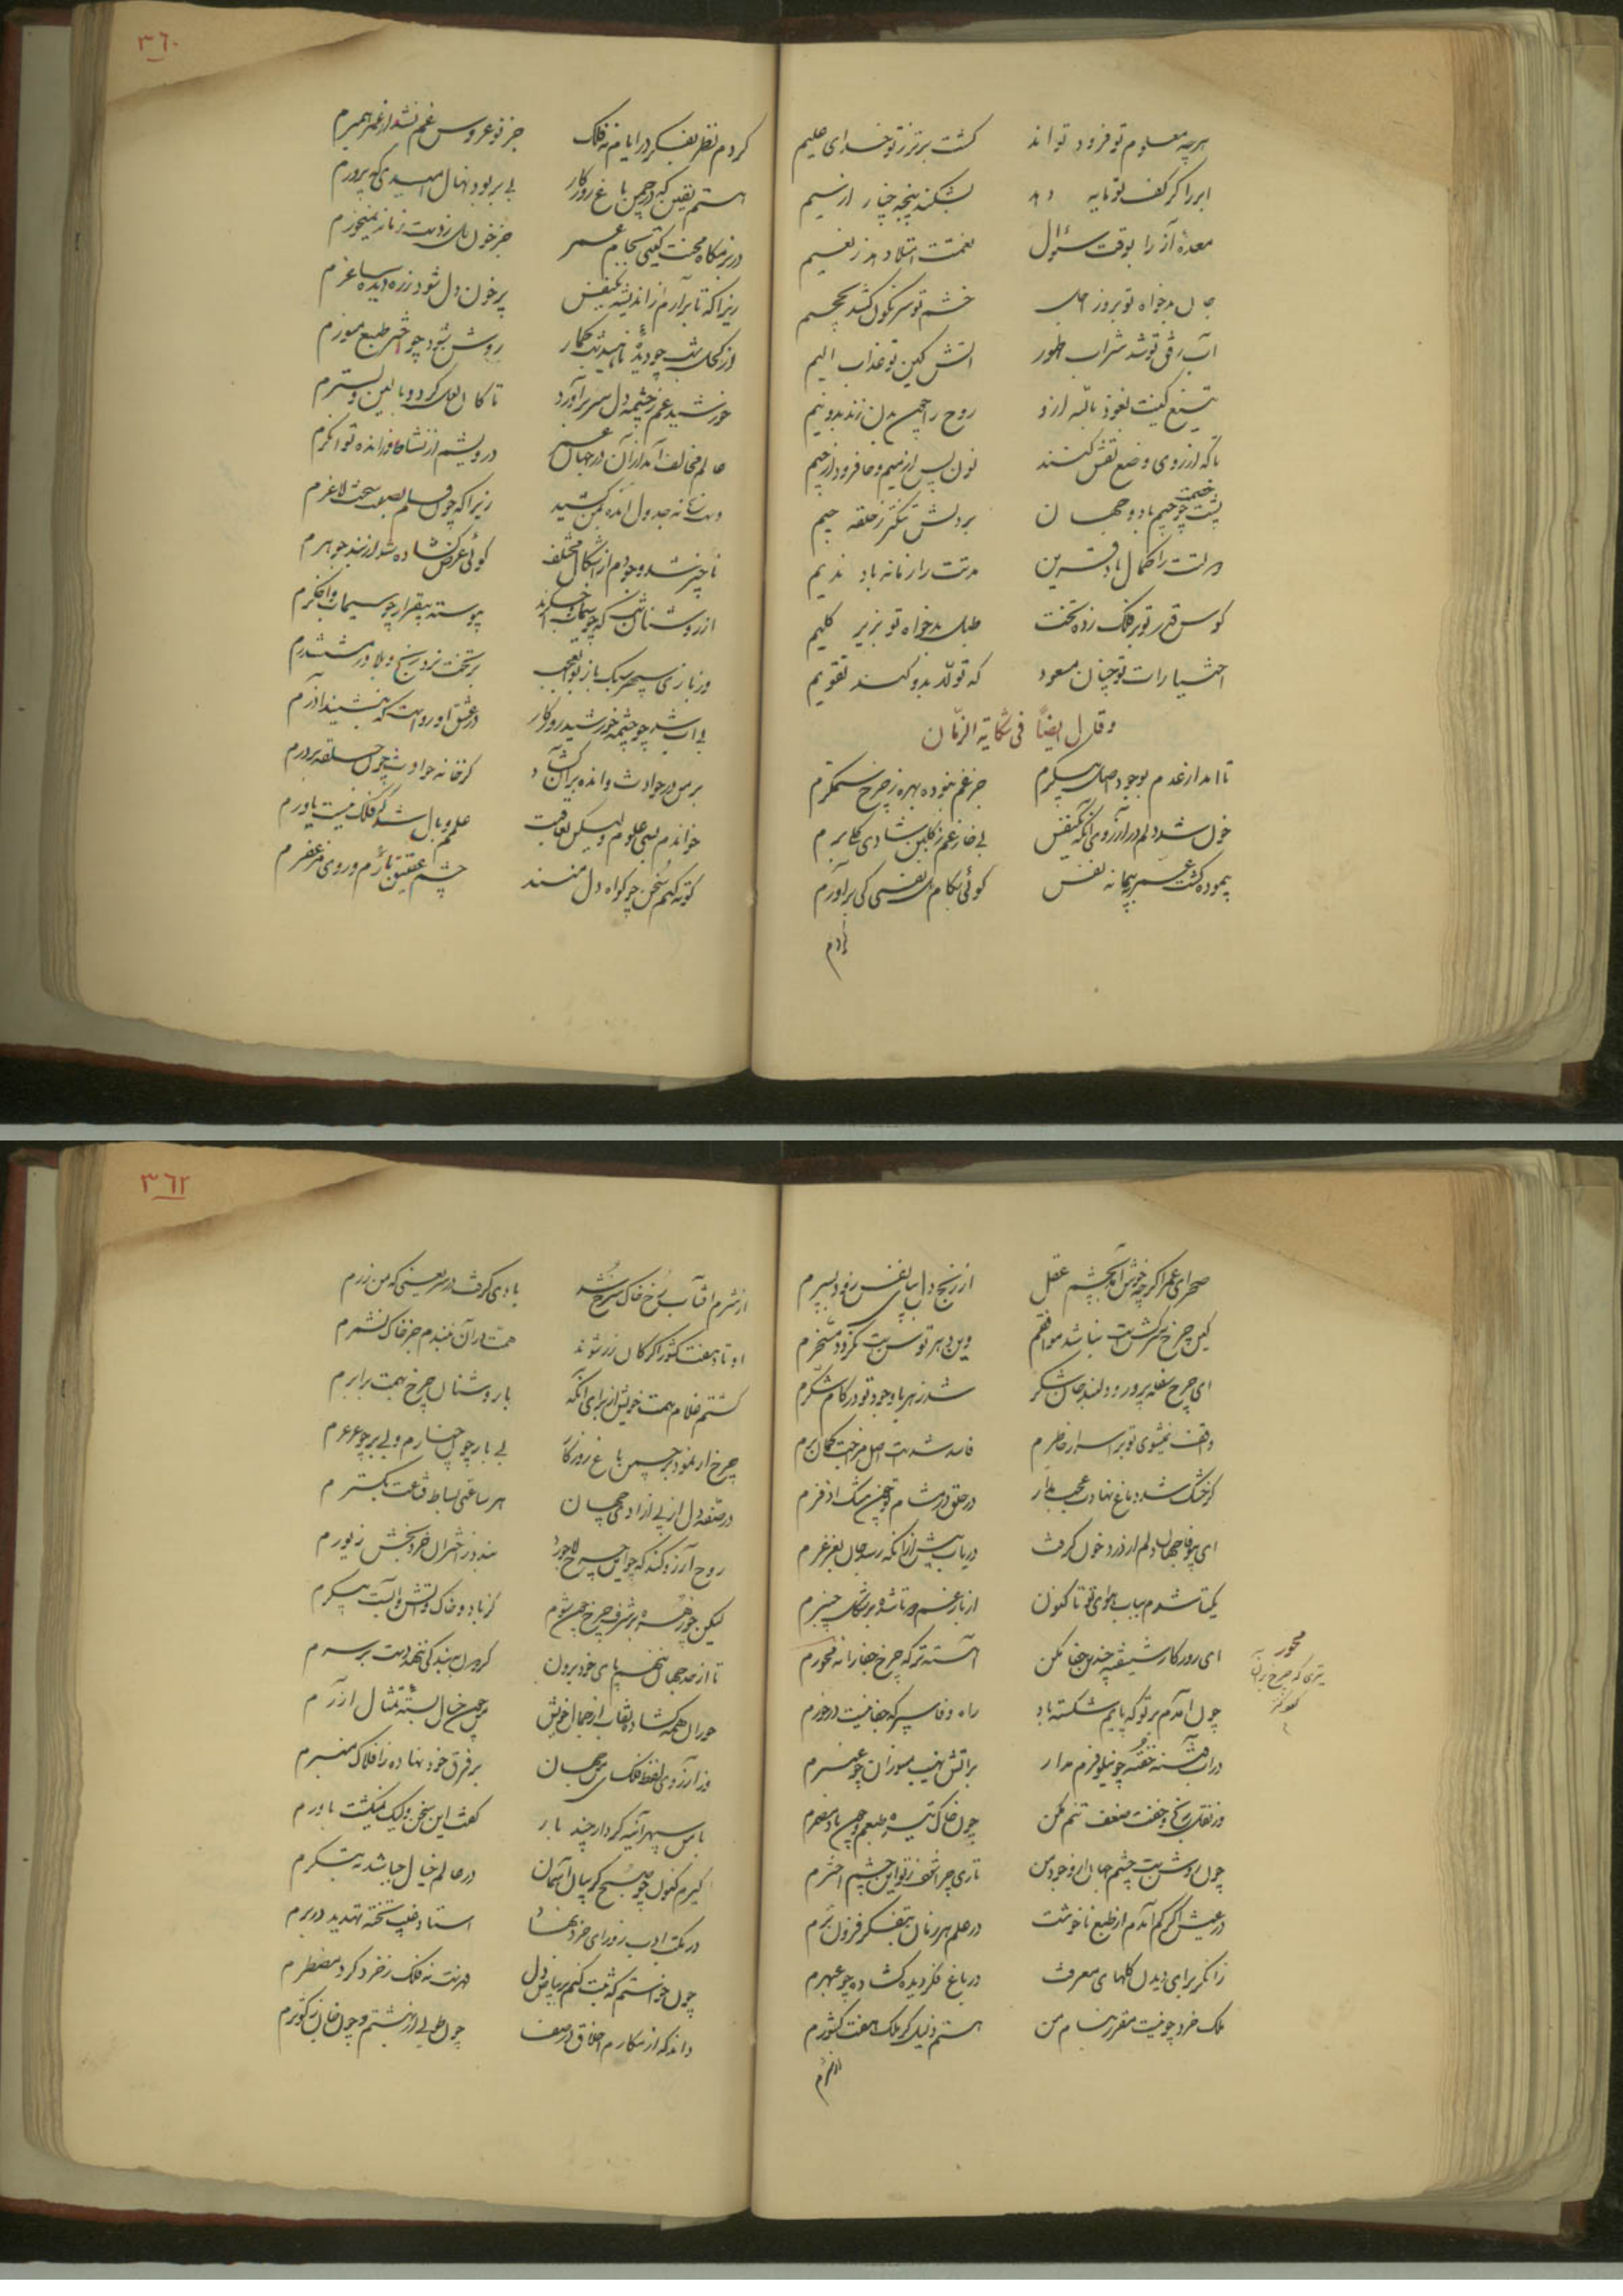 هرچه معلوم تو فرود تو اند
گشت برتر ز تو خدای علیم
ابر را گر کف تو مایه دهد
بشکند پنجه چنار از سیم
معدهٔ آز را بوقت سؤال
نعمتت امتلا دهد ز نعیم
جان بدخواه تو بروز اجل
خشم تو سرنگون کشد بجحیم
آب رفق تو شد شراب طهور
آتش کین تو عذاب الیم
تیغ کینت نعوذ بالله ازو
روح را چون بدن زند بدو نیم
پشت خصمت چو جیم باد و جهان
بر دلش تنگتر ز حلقه جیم
دولتت را کمال باد قرین
مدتت را زمانه باد ندیم
کوس قدر تو بر فلک زده تخت
طبل بدخواه تو بزیر گلیم
اختیارات تو چنان مسعود
که تولد بدو کند تقویم
و قال ایضاً فی شکایة الزمان
تا آمد از عدم بوجود اصل پیکرم
جز غم نبوده بهره ز چرخ ستمگرم
خون شد دلم در آرزوی آنکه یکنفس
بی خار غم ز گلبن شادی گلی برم
پیموده گشت عمر به پیمانه نفس
گوئی بکام دل نفسی کی برآورم
کردم
٣٦٠
کردم نظر بفکر در ایام نه فلک
جز نو عروس غم نشد از عمر همبرم
هستم یقین که در چمن باغ روزگار
بی بر بود نهال امیدی که پرورم
در بزمگاه محنت گیتی بجام عمر
جز خون دل ز دست زمانه نمیخورم
زیرا که تا برآرم از اندیشه یکنفس
پر خون دل شود ز ره دیده ساغرم
خورشید غم ز چشمه دل سر برآورد
تا کان لعل کرد و بالین و بسترم
عالم مخالف آمد از آن در جهان عمر
درویشم از نشاط و از انده توانگرم
ناچیز شد وجودم از اشکال مختلف
گوئی عرض گشاده شد از بند جوهرم
وز بازی سپهر سبک باز بوالعجب
بر تخت نرد رنج و بلا در مششدرم
بی آب شد چو چشمه خورشید روزگار
در عشق او رواست که بنشیند آذرم
بر من در حوادث و انده بر آن گشاد
کز خانه حوادث چون حلقه بر درم
خواندم بسی علوم ولیکن بعاقبت
علمم وبال شد که فلک نیست یاورم
کوته کنم سخن چو گواه دل منند
چشم عقیق بار و روی مزعفرم
صحرای عمر اگرچه خوش آید بچشم عقل
کین چرخ سرکش است نباشد موافقم
وین دهر توسن است نگردد مسخرم
ای چرخ سفله پرور و دلبند جان شکر
شد زهر با وجود تو در کام شکرم
واقف نمیشوی تو بر اسرار خاطرم
فاسد شدست اصل مزاجت گمان برم
گر خشک شد دماغ نهادت عجب مدار
ای بیوفا جهان دلم از درد خون گرفت
دریاب پیش از آنکه رسد جان بغرغرم
یکتا شدم بباب هوای تو تا کنون
از بار غم دو تا شده بر شکل چنبرم
ای روزگار شیفته چندین جفا مکن
آهسته‌تر که چرخ جفا را نه محورم
محور
تیری که چرخ بر آن
چون آمدم بر تو که پایم شکسته باد
راه وفا سپر که جفا نیست درخورم
در آب فتنه خفته چو نیلوفرم مدار
بر آتش نهیب مسوزان چو عنبرم
چون روشن است چشم جهان از وجود من
تاری چرا شد از تو این چشم اخترم
در عیش اگر کم آمدم از طبع ناخوشت
در علم هر زمان بتفکر فزون ترم
زانگه برای دیدن گلهای معرفت
در باغ فکر دیده گشاده چو عبهرم
ملک خرد چو نیست مقرر بنام من
هستم ذلیل گر ملک هفت کشورم
از شرم
٣٦٢
از شرم آفتاب رخ خاک سرخ شد
یا دی گرفت از سر یعنی که من زرم
اوتاد هفت کشور اگر کان زر شوند
همت در آن نبندم جز خاک نشمرم
گشتم غلام همت خویش از برای آنکه
با روشنان چرخ بهمت برابرم
چرخ ار نمود در چمن باغ روزگار
بی بار چون چنارم و بی بر چو عرعرم
در صفه دل از پی آزادی جهان
هر ساعتی بساط قناعت بگسترم
روح آرزو کند که چو این چرخ لاجورد
بندد ز اختران خرد بخش زیورم
لیکن چو زهره بر شرف چرخ چون شوم
کز باد و خاک و آتش و آبست پیکرم
تا از حد جهان ننهم پای خود برون
گردون به بندگی ننهد دست بر سرم
حوران همه گشاده نقاب از جمال خویش
من چون خیال بسته تمثال آزرم
وز آرزوی لفظ فلک سای من جهان
بر فرق خود نهاده ز افلاک منبرم
با من سپهر آینه کردار چند بار
گفت این سخن ولیک نگشت باورم
گیرم کنون چو صبح گریبان آسمان
در عالم خیال چه باشد که بنگرم
در مکتب ادب ز ورای خرد نهاد
استاد غیب تخته تهدید در برم
چون خواستم که ثبت کنم بر بیاض دل
فهرست نه فلک ز خرد کرد مسطرم
داند که از مکارم اخلاق در صف
چون طوبی از بهشتم و چون خانه کوثرم